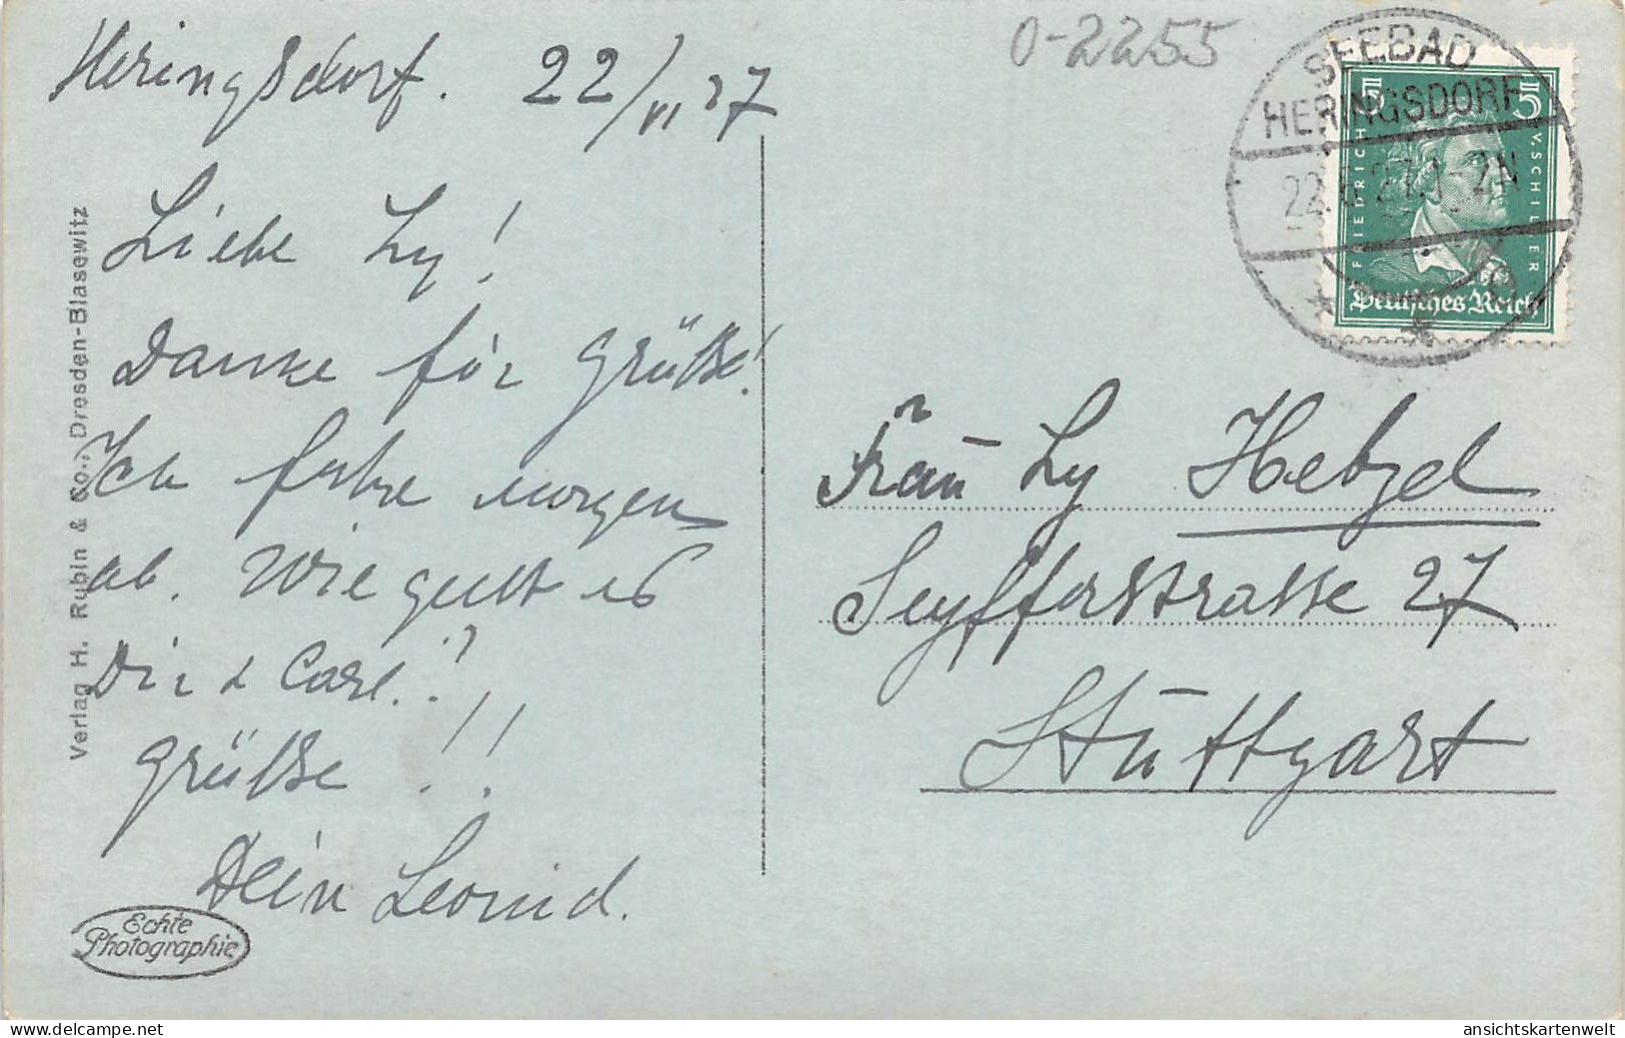 Heringsdorf. 22/VI 27
Liebe Ly!
Danke für Grüße!
Ich fahre morgen
ab. Wie geht es
Dir & Carl?
Grüße!!
Dein Leonid.
Verlag H. Rubin & Co., Dresden-Blasewitz
Echte
Photographie
0-2255
SEEBAD
HERINGSDORF
22.6.27.1-2N
5
5
FRIEDRICH
V. SCHILLER
Deutsches Reich
Frau Ly Hebzel
Seyfferstrasse 27
Stuttgart
delcampe.net
ansichtskartenwelt